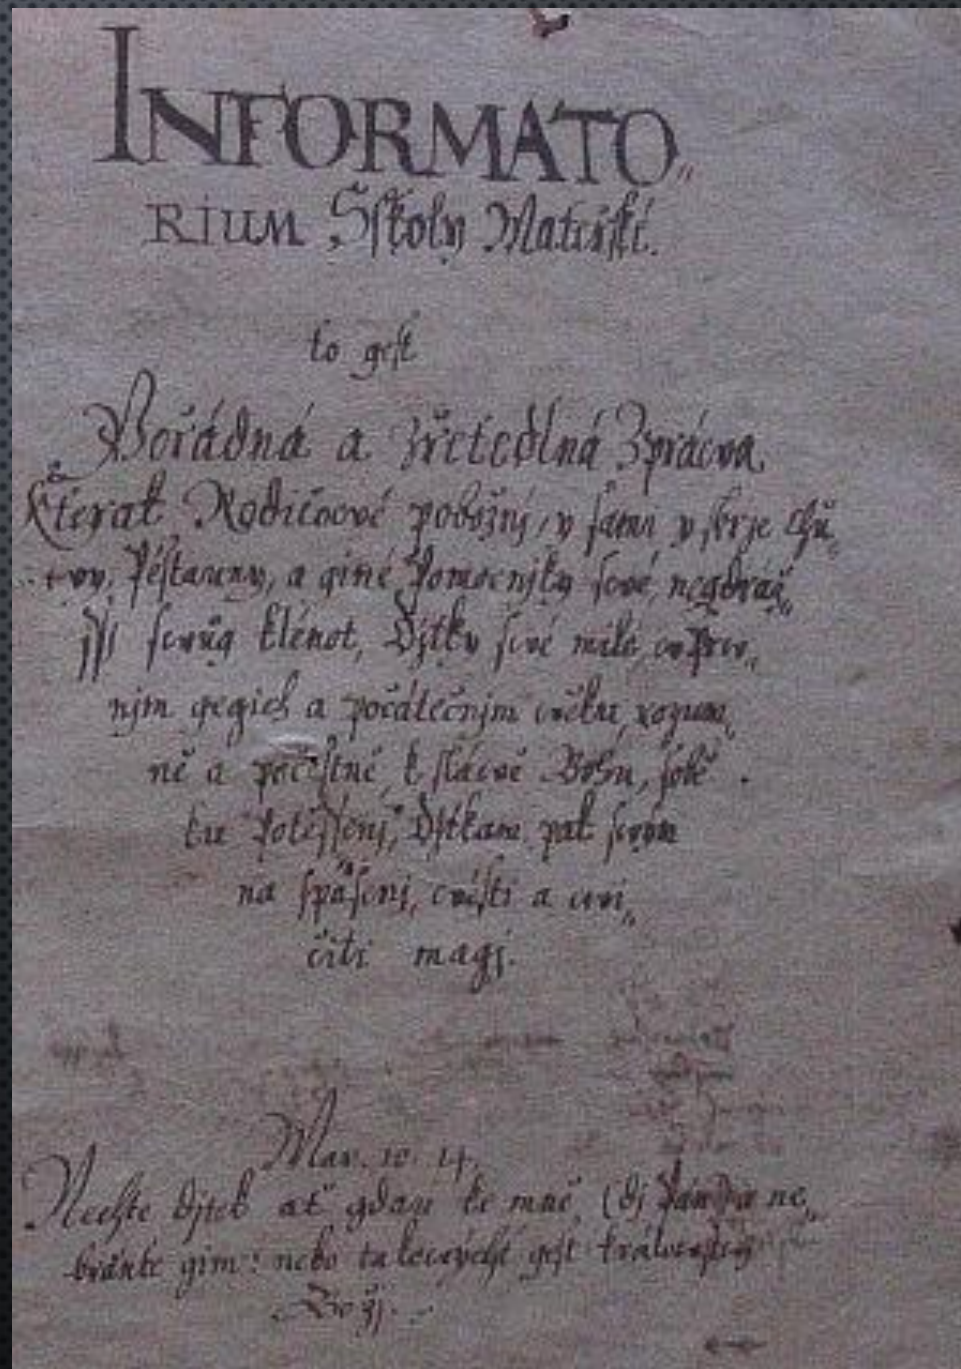 INFORMATO„
RIUM Sskoly Mateřské.
to gest
Pořádná a zřetedlná Zpráwa,
kterak Rodičowé pobožnj, y sami y skrze Chů„
wy, Pěstauny, a giné Pomocnjky swé, neydraž„
ssj swůg klénot, Djtky swé milé, w prw„
njm gegich a počátečnjm wěku, rozum„
ně a počestně, k sláwě Bohu, sobě
ku potěssenj, Djtkam pak swým
na spasenj, wésti a cwi„
čiti magj.
Mar. 10. 14.
Nechte djtek ať gdau ke mně, (dj Pán) a ne„
braňte gim: nebo takowých gest králowstwj
Božj.